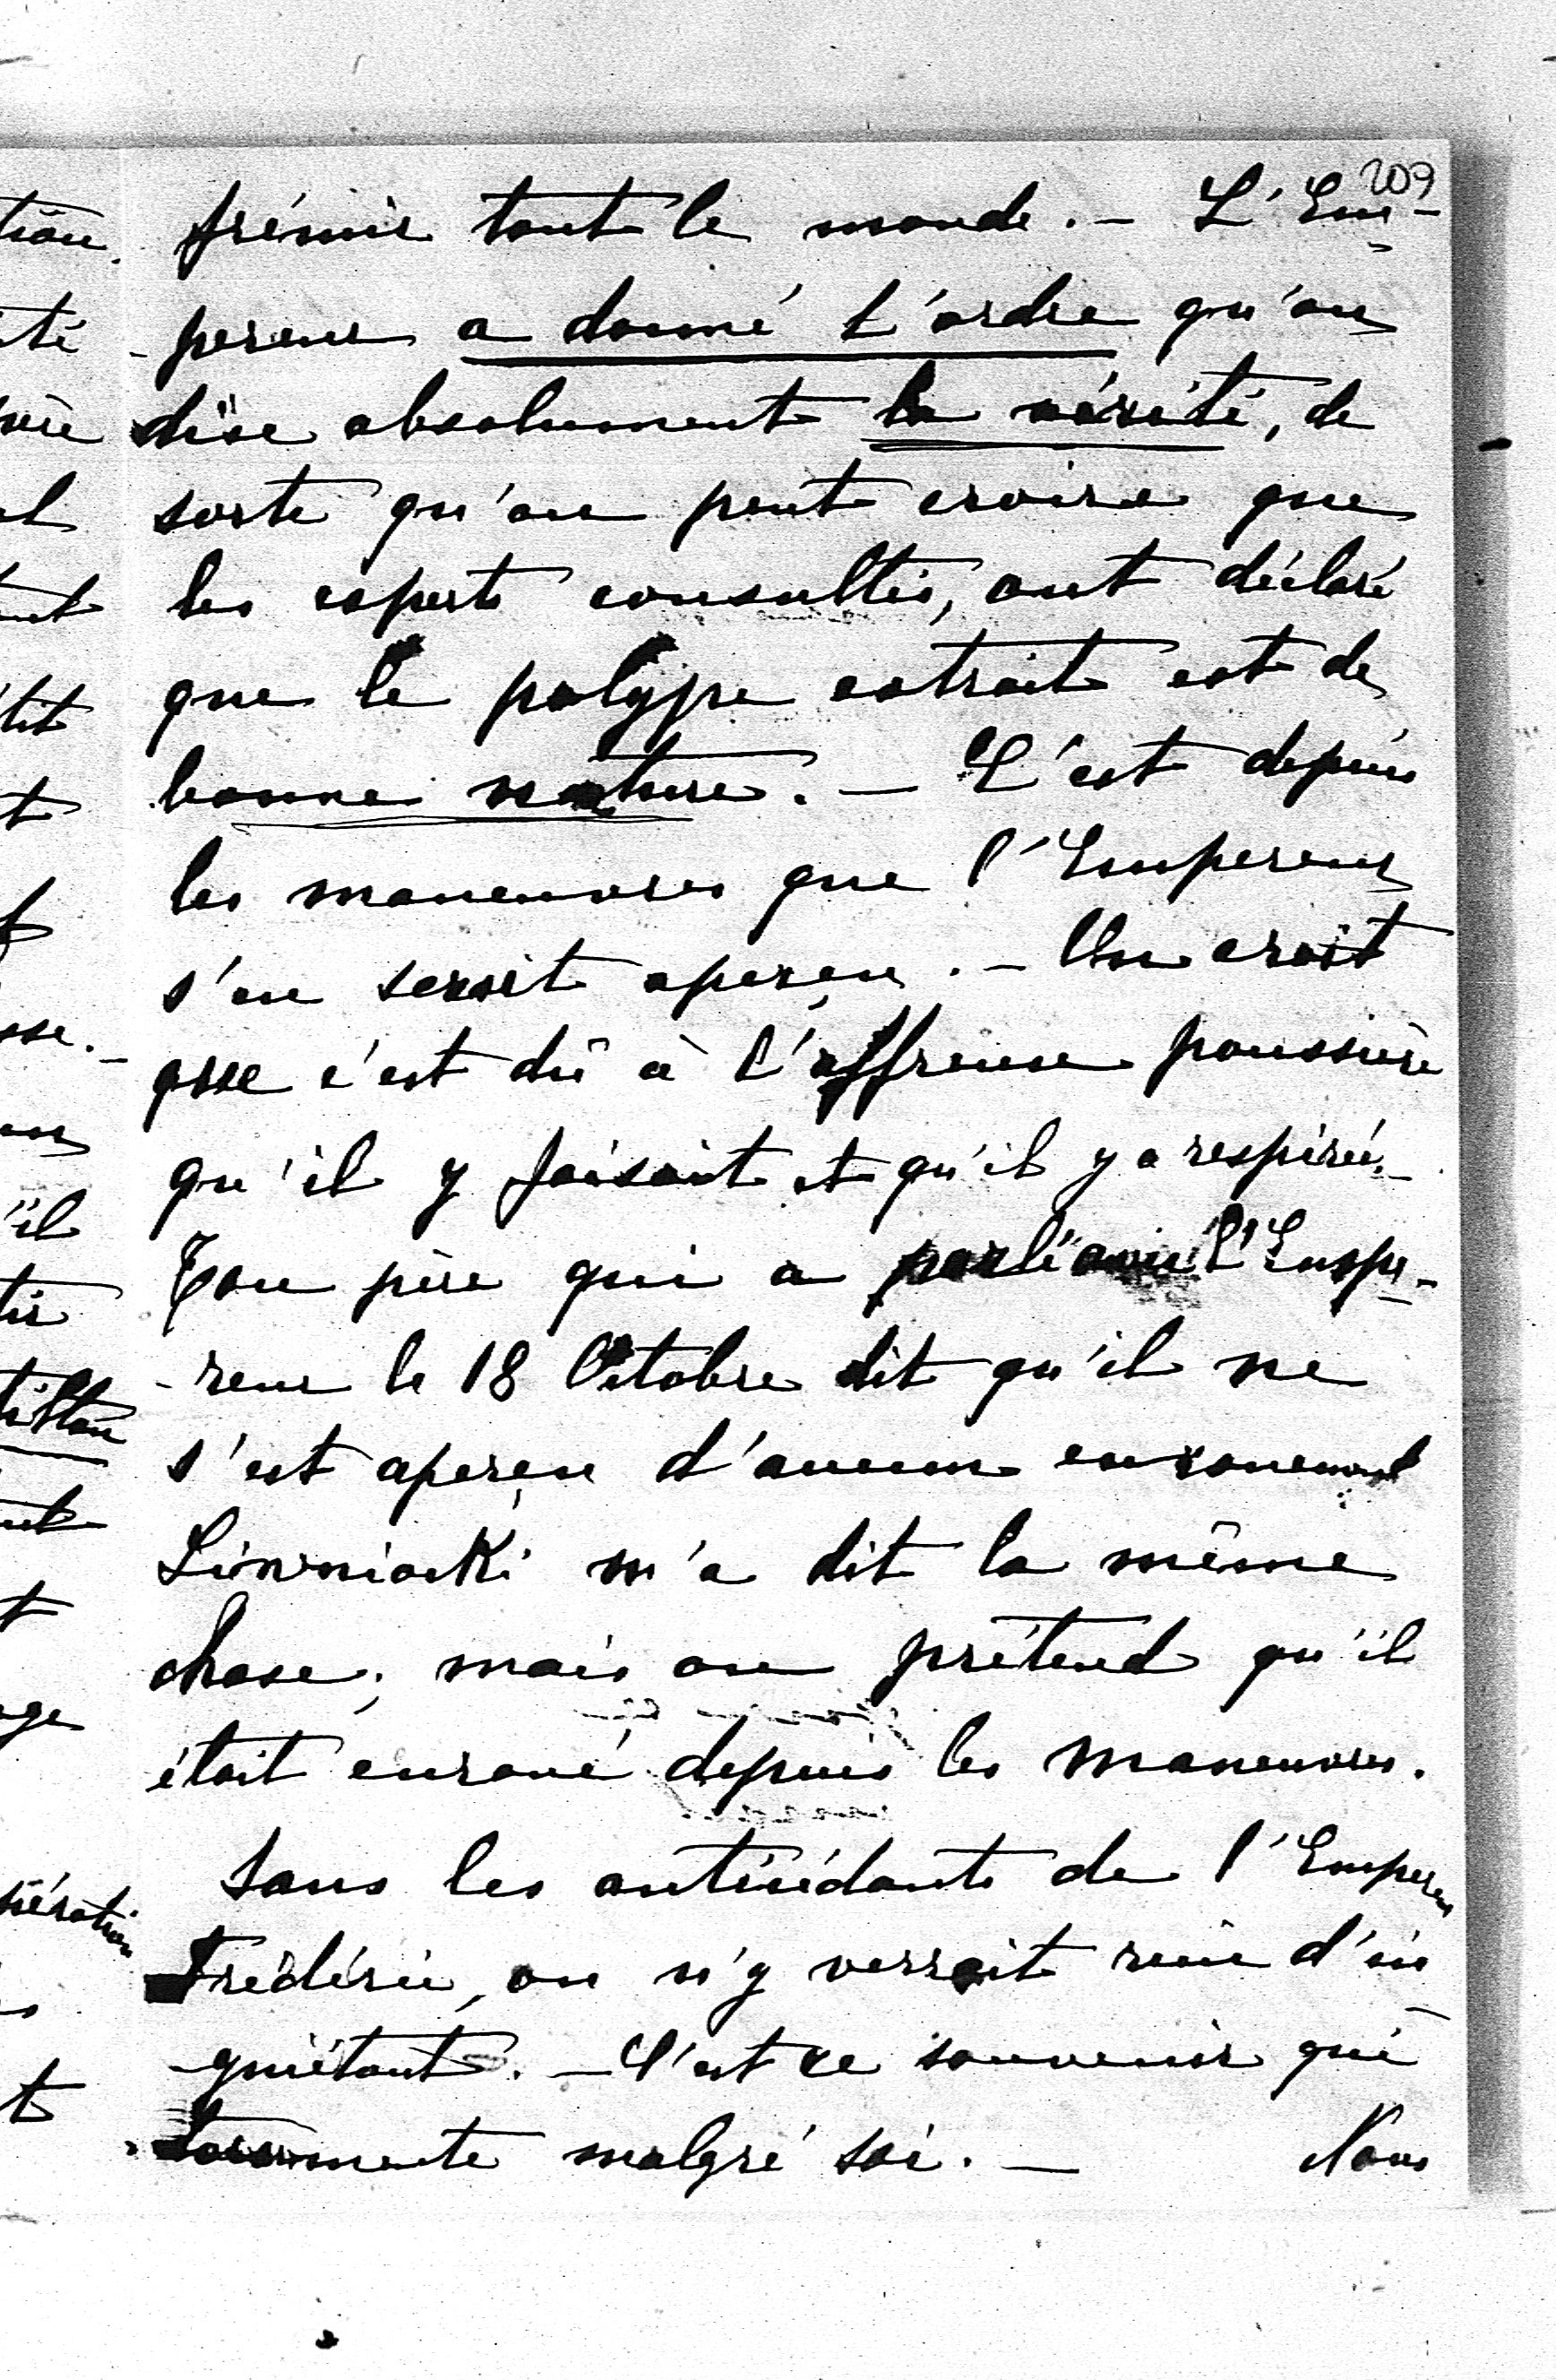 209
frémir tout le monde. — L'Em-
-pereur a donné l'ordre qu'on
dise absolument la vérité, de
sorte qu'on peut croire que
les experts consultés, ont déclaré
que le polype extrait est de
bonne nature. — C'est depuis
les manœuvres que l'Empereur
s'en serait aperçu. — On croit
que c'est dû à l'affreuse poussière
qu'il y faisait et qu'il y a respiré. —
Ton père qui a parlé avec l'Empe-
-reur le 18 Octobre dit qu'il ne
s'est aperçu d'aucun enrouement
m'a dit la même
chose; mais on prétend qu'il
était enroué depuis les manœuvres.
Sans les antécédants de l'Empereur
Frédéric, on n'y verrait rien d'in
-quiétant. — C'est ce souvenir qui
tourmente malgré soi. — Nous